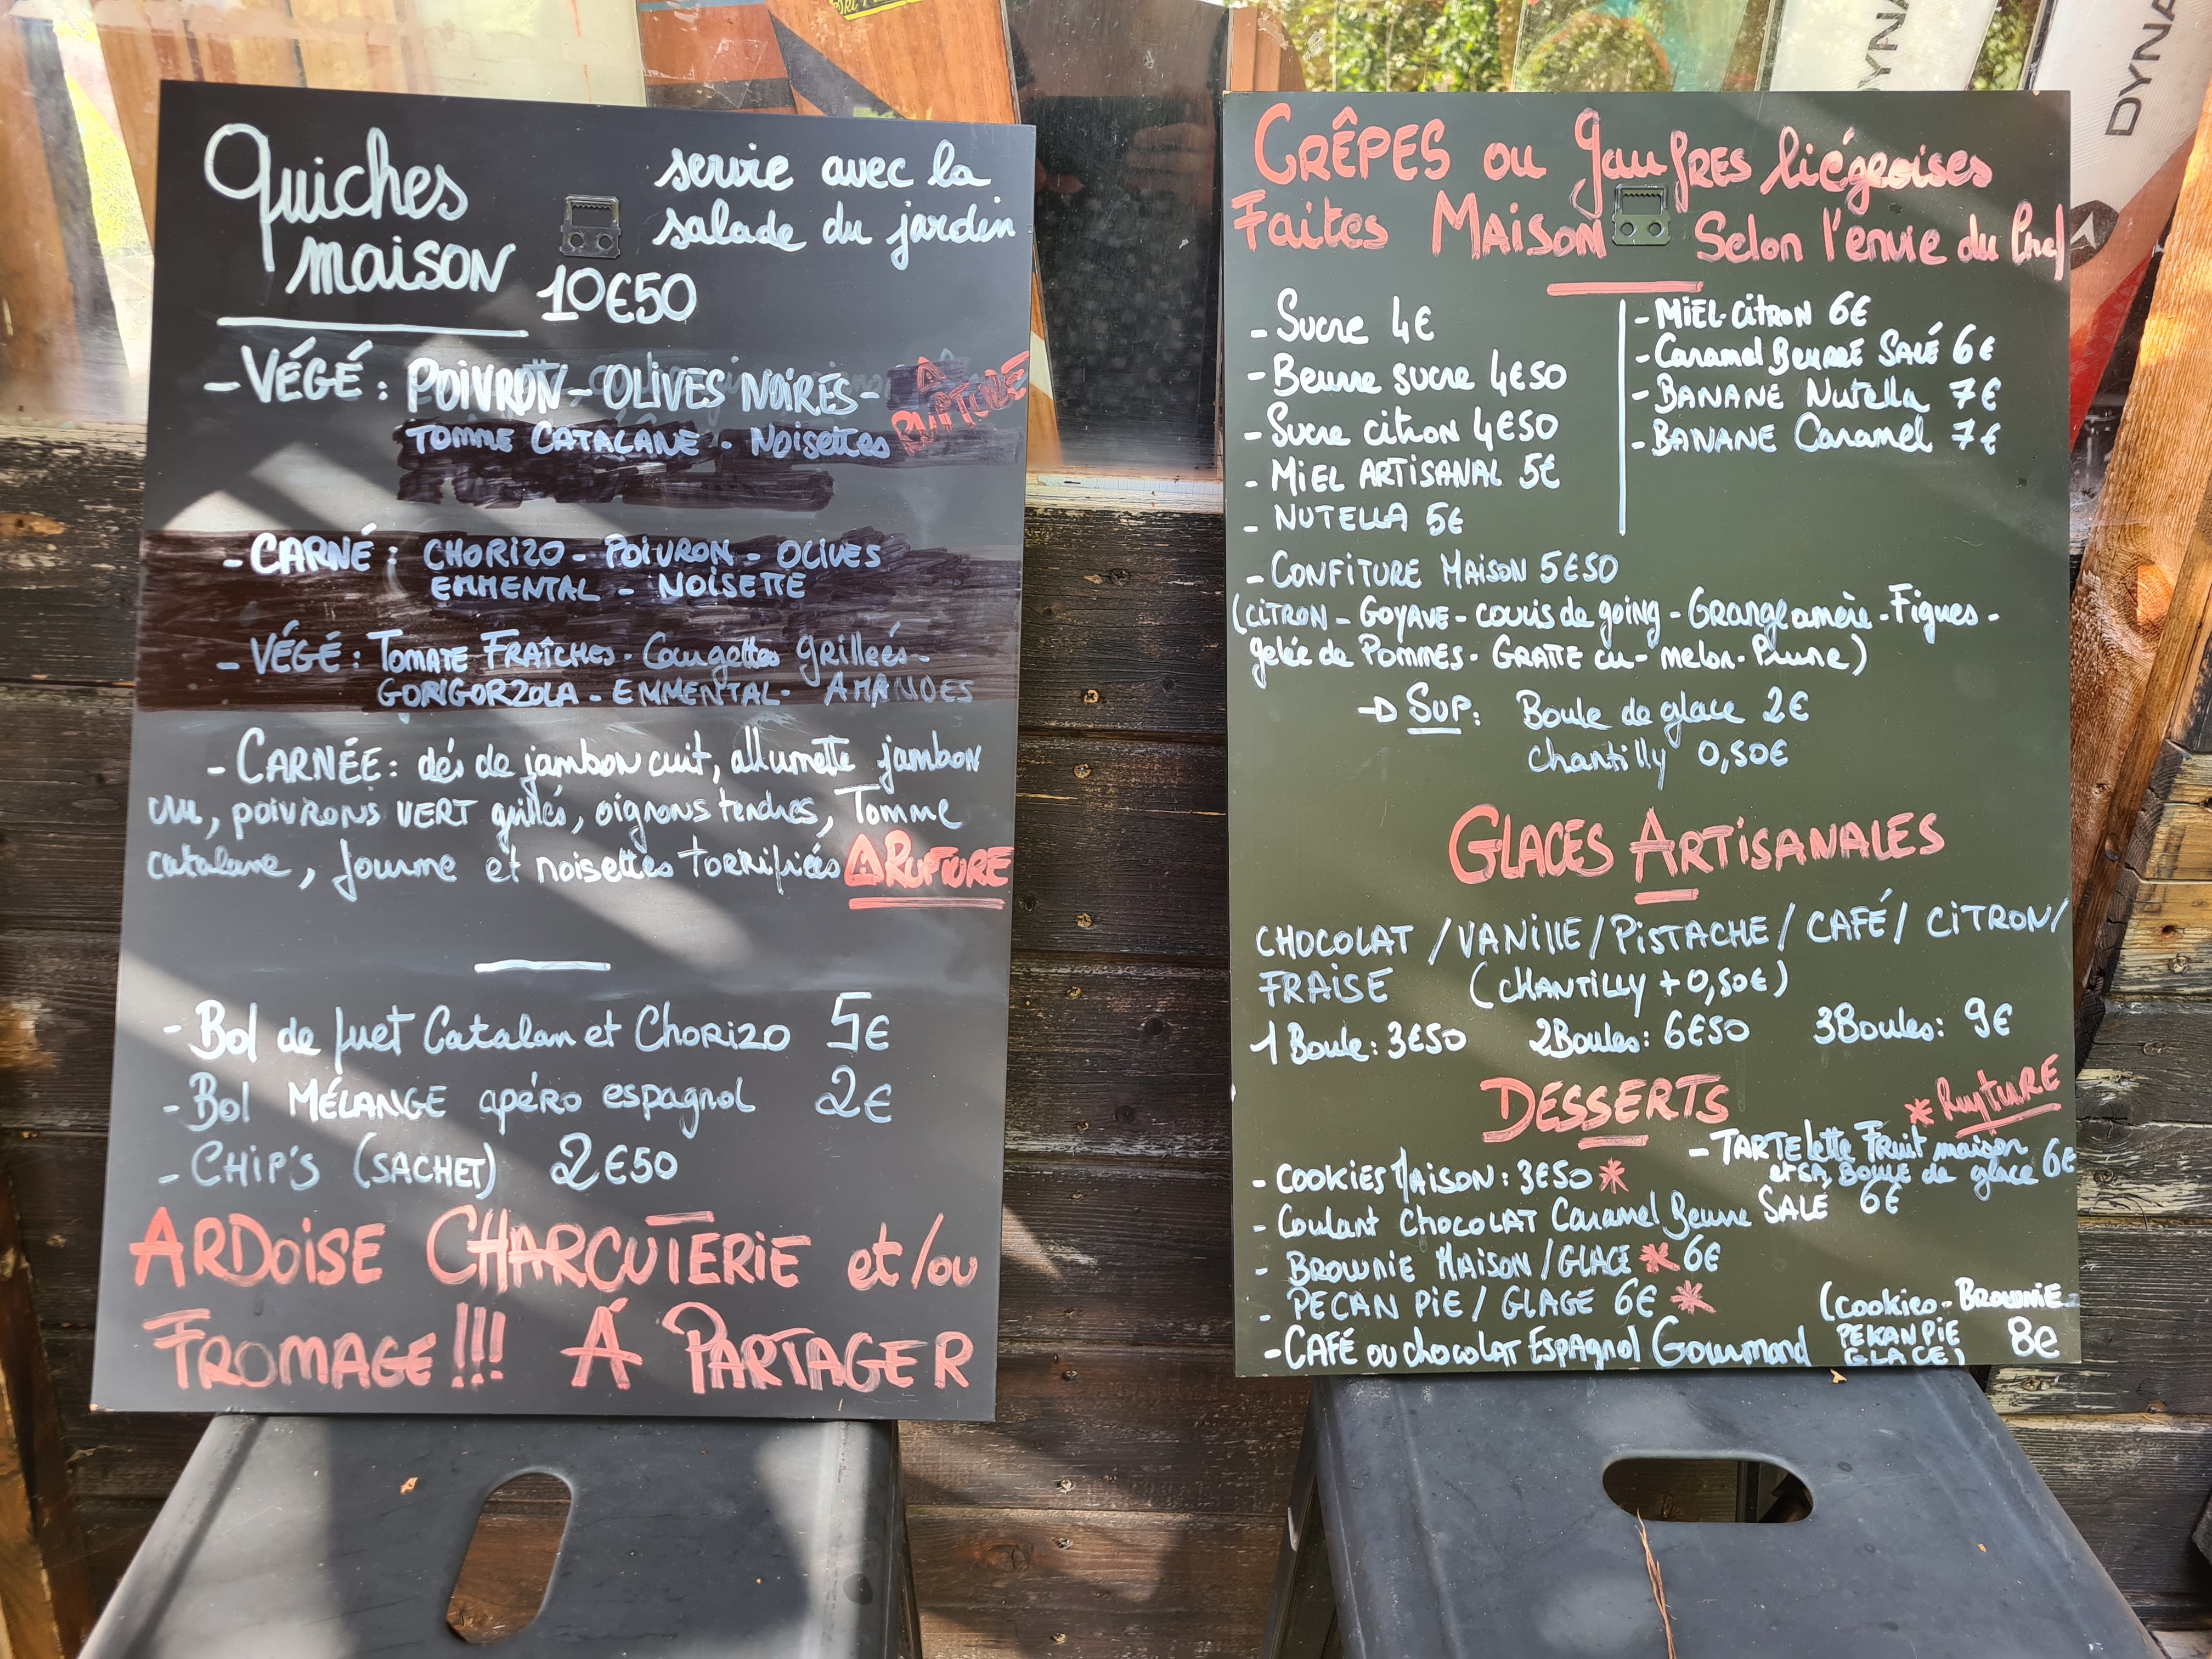 Quiches
maison 10€50
servie avec la
salade du jardin
- VÉGÉ : POIVRON - OLIVES NOIRES -
TOMME CATALANE - Noisettes
RUPTURE
- CARNÉ : CHORIZO - POIVRON - OLIVES
EMMENTAL - NOISETTE
- VÉGÉ : TOMATE FRAÎCHES - Courgettes grilleés -
GORIGORZOLA - EMMENTAL - AMANDES
- CARNÉE : dés de jambon cuit, allumette jambon
cru, POIVRONS VERT grillés, oignons tendres, Tomme
catalane, fourme et noisettes TORRifiées RUPTURE
- Bol de fuet Catalan et Chorizo 5€
- Bol MÉLANGE apéro espagnol 2€
- CHIP'S (SACHET) 2€50
ARDOISE CHARCUTERIE et/ou
FROMAGE!!! À PARTAGER
CRÊPES ou gaufRES liégeoises
Faites MAISON Selon l'envie du Chef
- Sucre 4€
- Beurre sucre 4€50
- Sucre citron 4€50
- MIEL ARTISANAL 5€
- NUTELLA 5€
- MIEL-CITRON 6€
- Caramel Beurre SALÉ 6€
- BANANE Nutella 7€
- BANANE Caramel 7€
- CONFITURE MAISON 5€50
(CITRON - GOYAVE - couis de going - Orange amère - Figues -
gelée de POMMES - GRATTE cu - melon - Prune)
SUP : Boule de glace 2€
Chantilly 0,50€
GLACES ARTISANALES
CHOCOLAT / VANILLE / PISTACHE / CAFÉ / CITRON /
FRAISE (CHANTILLY + 0,50€)
1 Boule : 3€50 2Boules : 6€50 3Boules : 9€
DESSERTS
* RupTURE
- TARTElette Fruit maison
et SA Boule de glace 6€
- COOKIES MAISON : 3€50 *
- Coulant CHOCOLAT Caramel Beurre SALÉ 6€
- BROWNIE MAISON / GLACE * 6€
- PECAN PIE / GLACE 6€ *
- CAFÉ OU chocoLAT ESPAgnol Gourmand (cookies - BROWNIE
PEKAN PIE
GLACE) 8€
DYNA
DYNA